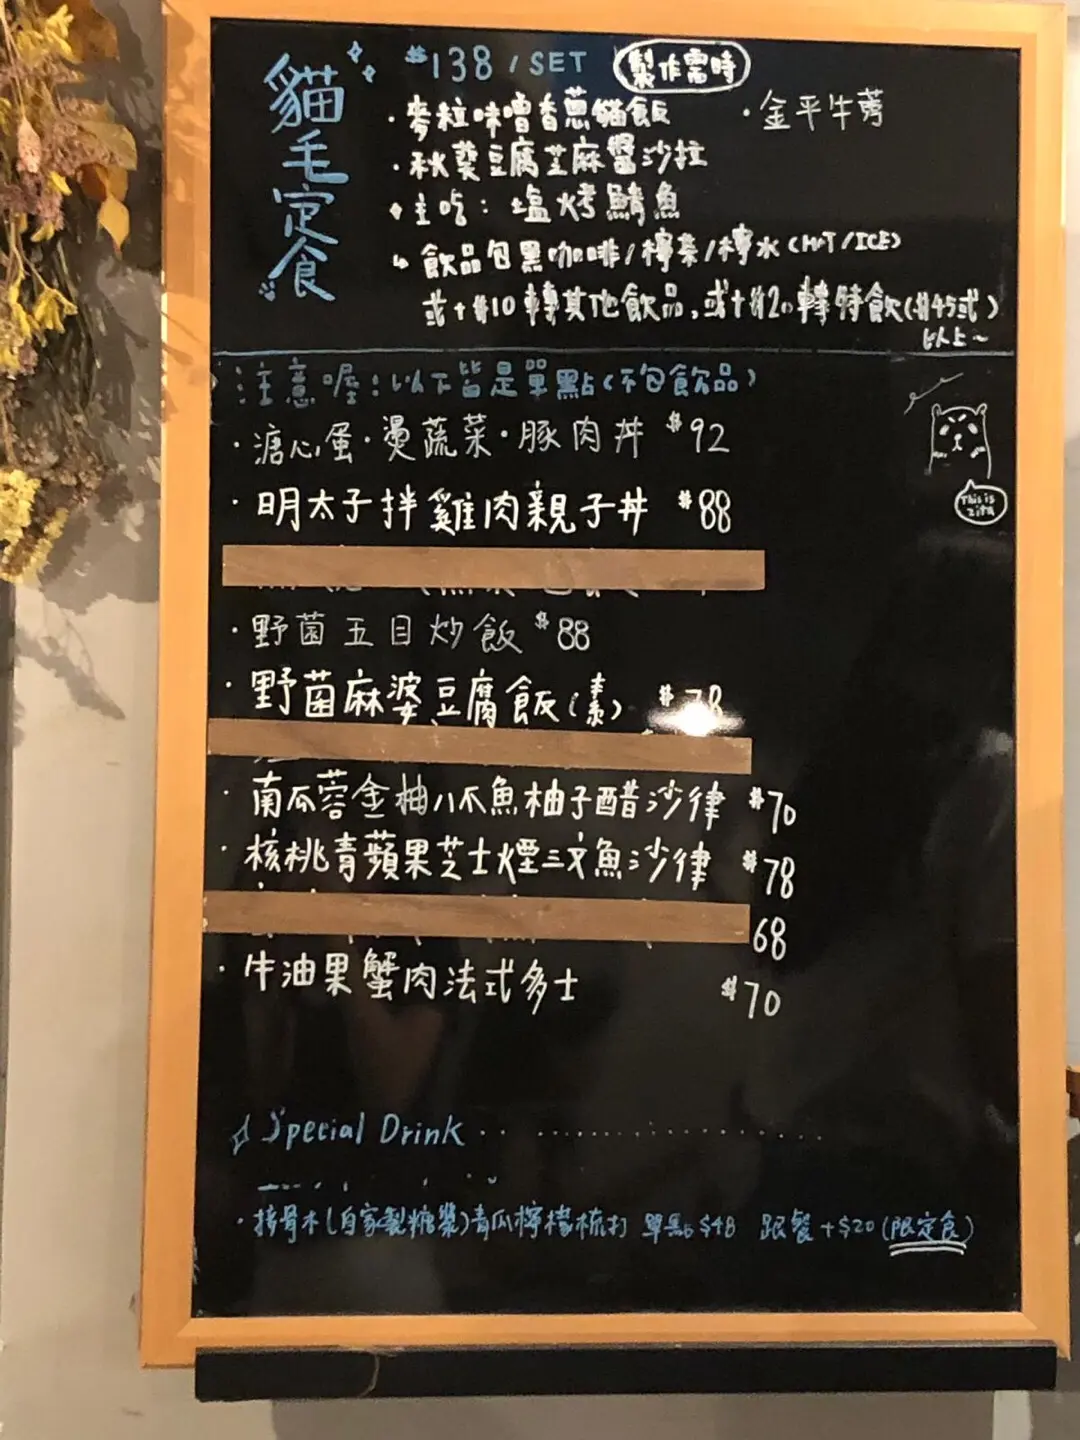 貓毛定食
$138 / SET 製作需時
・麥粒味噌香蔥貓飯 ・金平牛蒡
・秋葵豆腐芝麻醬沙拉
・主吃：塩烤鯖魚
↳ 飲品包黑咖啡/檸茶/檸水(HOT/ICE)
或+$10轉其他飲品,或+$20轉特飲($45或
以上~)
注意喔：以下皆是單點(不包飲品)
・溏心蛋・燙蔬菜・豚肉丼 $92
This is
・明太子拌雞肉親子丼 $88
・野菌五目炒飯 $88
・野菌麻婆豆腐飯(素) $78
・南瓜蓉金柚八爪魚柚子醋沙律 $70
・核桃青蘋果芝士煙三文魚沙律 $78
68
・牛油果蟹肉法式多士 $70
Special Drink
・接骨木(自家製糖漿)青瓜檸檬梳打 單點$48 跟餐+$20(限定食)